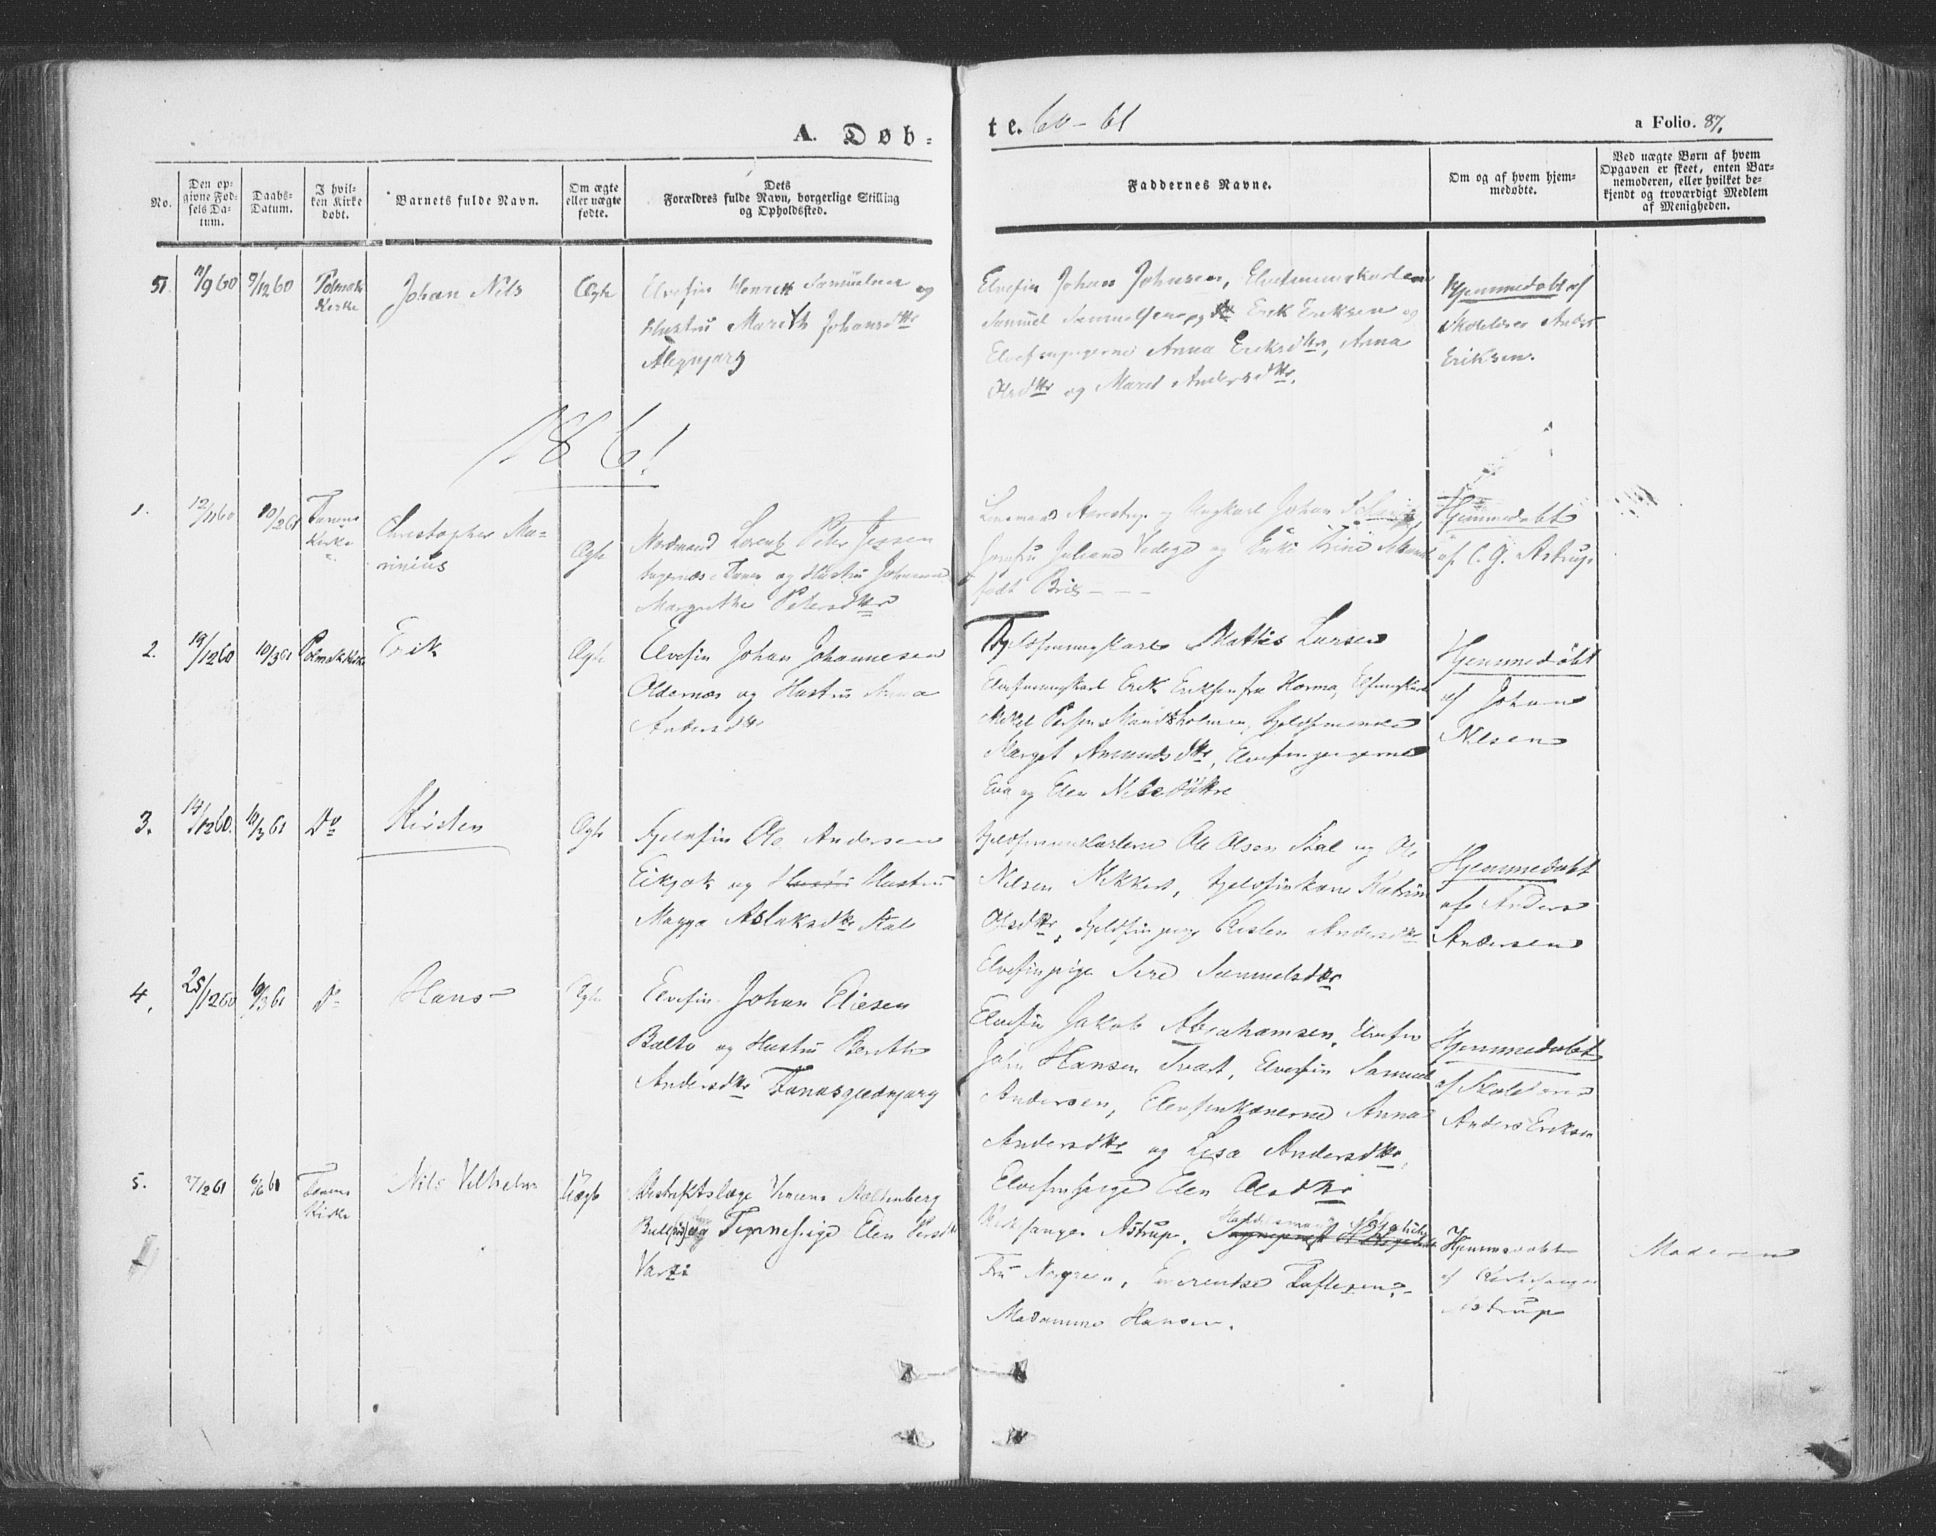 A. Døb-
te. 60-61
a Folio. 87.
No.
Den op-
givne Fød-
sels Da-
tum.
Daabs-
Datum.
I hvil-
ken Kirke
døbt.
Barnets fulde Navn.
Om ægte
eller uægte
fødte.
Dets
Forældres fulde Navn, borgerlige Stilling
og Opholdssted.
Faddernes Navne.
Om og af hvem hjem-
medøbte.
Ved uægte Børn af hvem
Opgaven er skeet, enten Bar-
nemoderen, eller hvilket be-
kjendt og troværdigt Medlem
af Menigheden.
51.
11/9 60
9/12 60
Polmak
Kirke
Johan Nils
Ægte
Elvefin Henrik Samuelsen og
Hustru Marith Johansdtr
Elvefin Johan Johnsen,
Samuel Samuelsen og Erik Eriksen og
Anna Eriksdtr, Anna
Olsdtr og Maret Andersdtr.
Hjemmedøbt af
Skolelærer Anders
Eriksen.
1861
1.
12/11 60
10/2 61
Tanens
Kirke
Christopher Ma-
rinius
Ægte
Nordmand Lorentz Peter Jessen
i Tanen og Hustru Johanna
Margrethe Petersdtr
Lensmand Aarstrup og Ungkarl Johan
Jomfru Juliane og Enke Trine
født Bries - - -
Hjemmedøbt
af C. G. Astrup
2.
19/12 60
10/3 61
Polmak Kirke
Erik
Ægte
Elvefin Johan Johannesen
Oldernæs og Hustru Anna
Andersdtr
Mathis Larsen
Erik Eriksen fra Horma,
Mikel Persen Mandsholmen,
Marget Amundsdtr,
Eva og Elen Nilsdøttre
Hjemmedøbt
af Johan
Nilsen
3.
14/12 60.
10/3 61
Do
Kirsten
Ægte
Fjeldfin Ole Andersen
og Hustru Hustru
Magga Aslaksdtr Kal
Ole Olsen Kal og Ole
Nilsen Nikkas, Fjeldfinkone Katrine
Olsdtr, Fjeldfinpige Kisten Andersdtr
Elvefinpige Siri Samuelsdtr
Hjemmedøbt
af Anders
Andersen
4.
25/12 60
10/3 61
Do
Hans
Ægte
Elvefin Johan Eliesen
Balto og Hustru Berith
Andersdtr
Elvefin Jakob Abrahamsen, Elvefin
John Hansen Tvast, Elvefin Samuel
Andersen, Elvefinkonerne Anna
Andersdtr og Lisa Andersdtr,
Elvefinpige Elen Olsdtr
Hjemmedøbt
af Skolelærer
Anders Eriksen
5.
27/2 61
6/6 61
Tanens
Kirke
Nils Vilhelm
Uægte
Distriktslæge Vincens Stoltenberg
Bull og Tjenestepige Elen Persdtr
Varsi
Kirkesanger Astrup,
Fru Norgreen,
Madamme Hansen.
Hjemmedøbt
af Kirkesanger
Astrup
Moderen